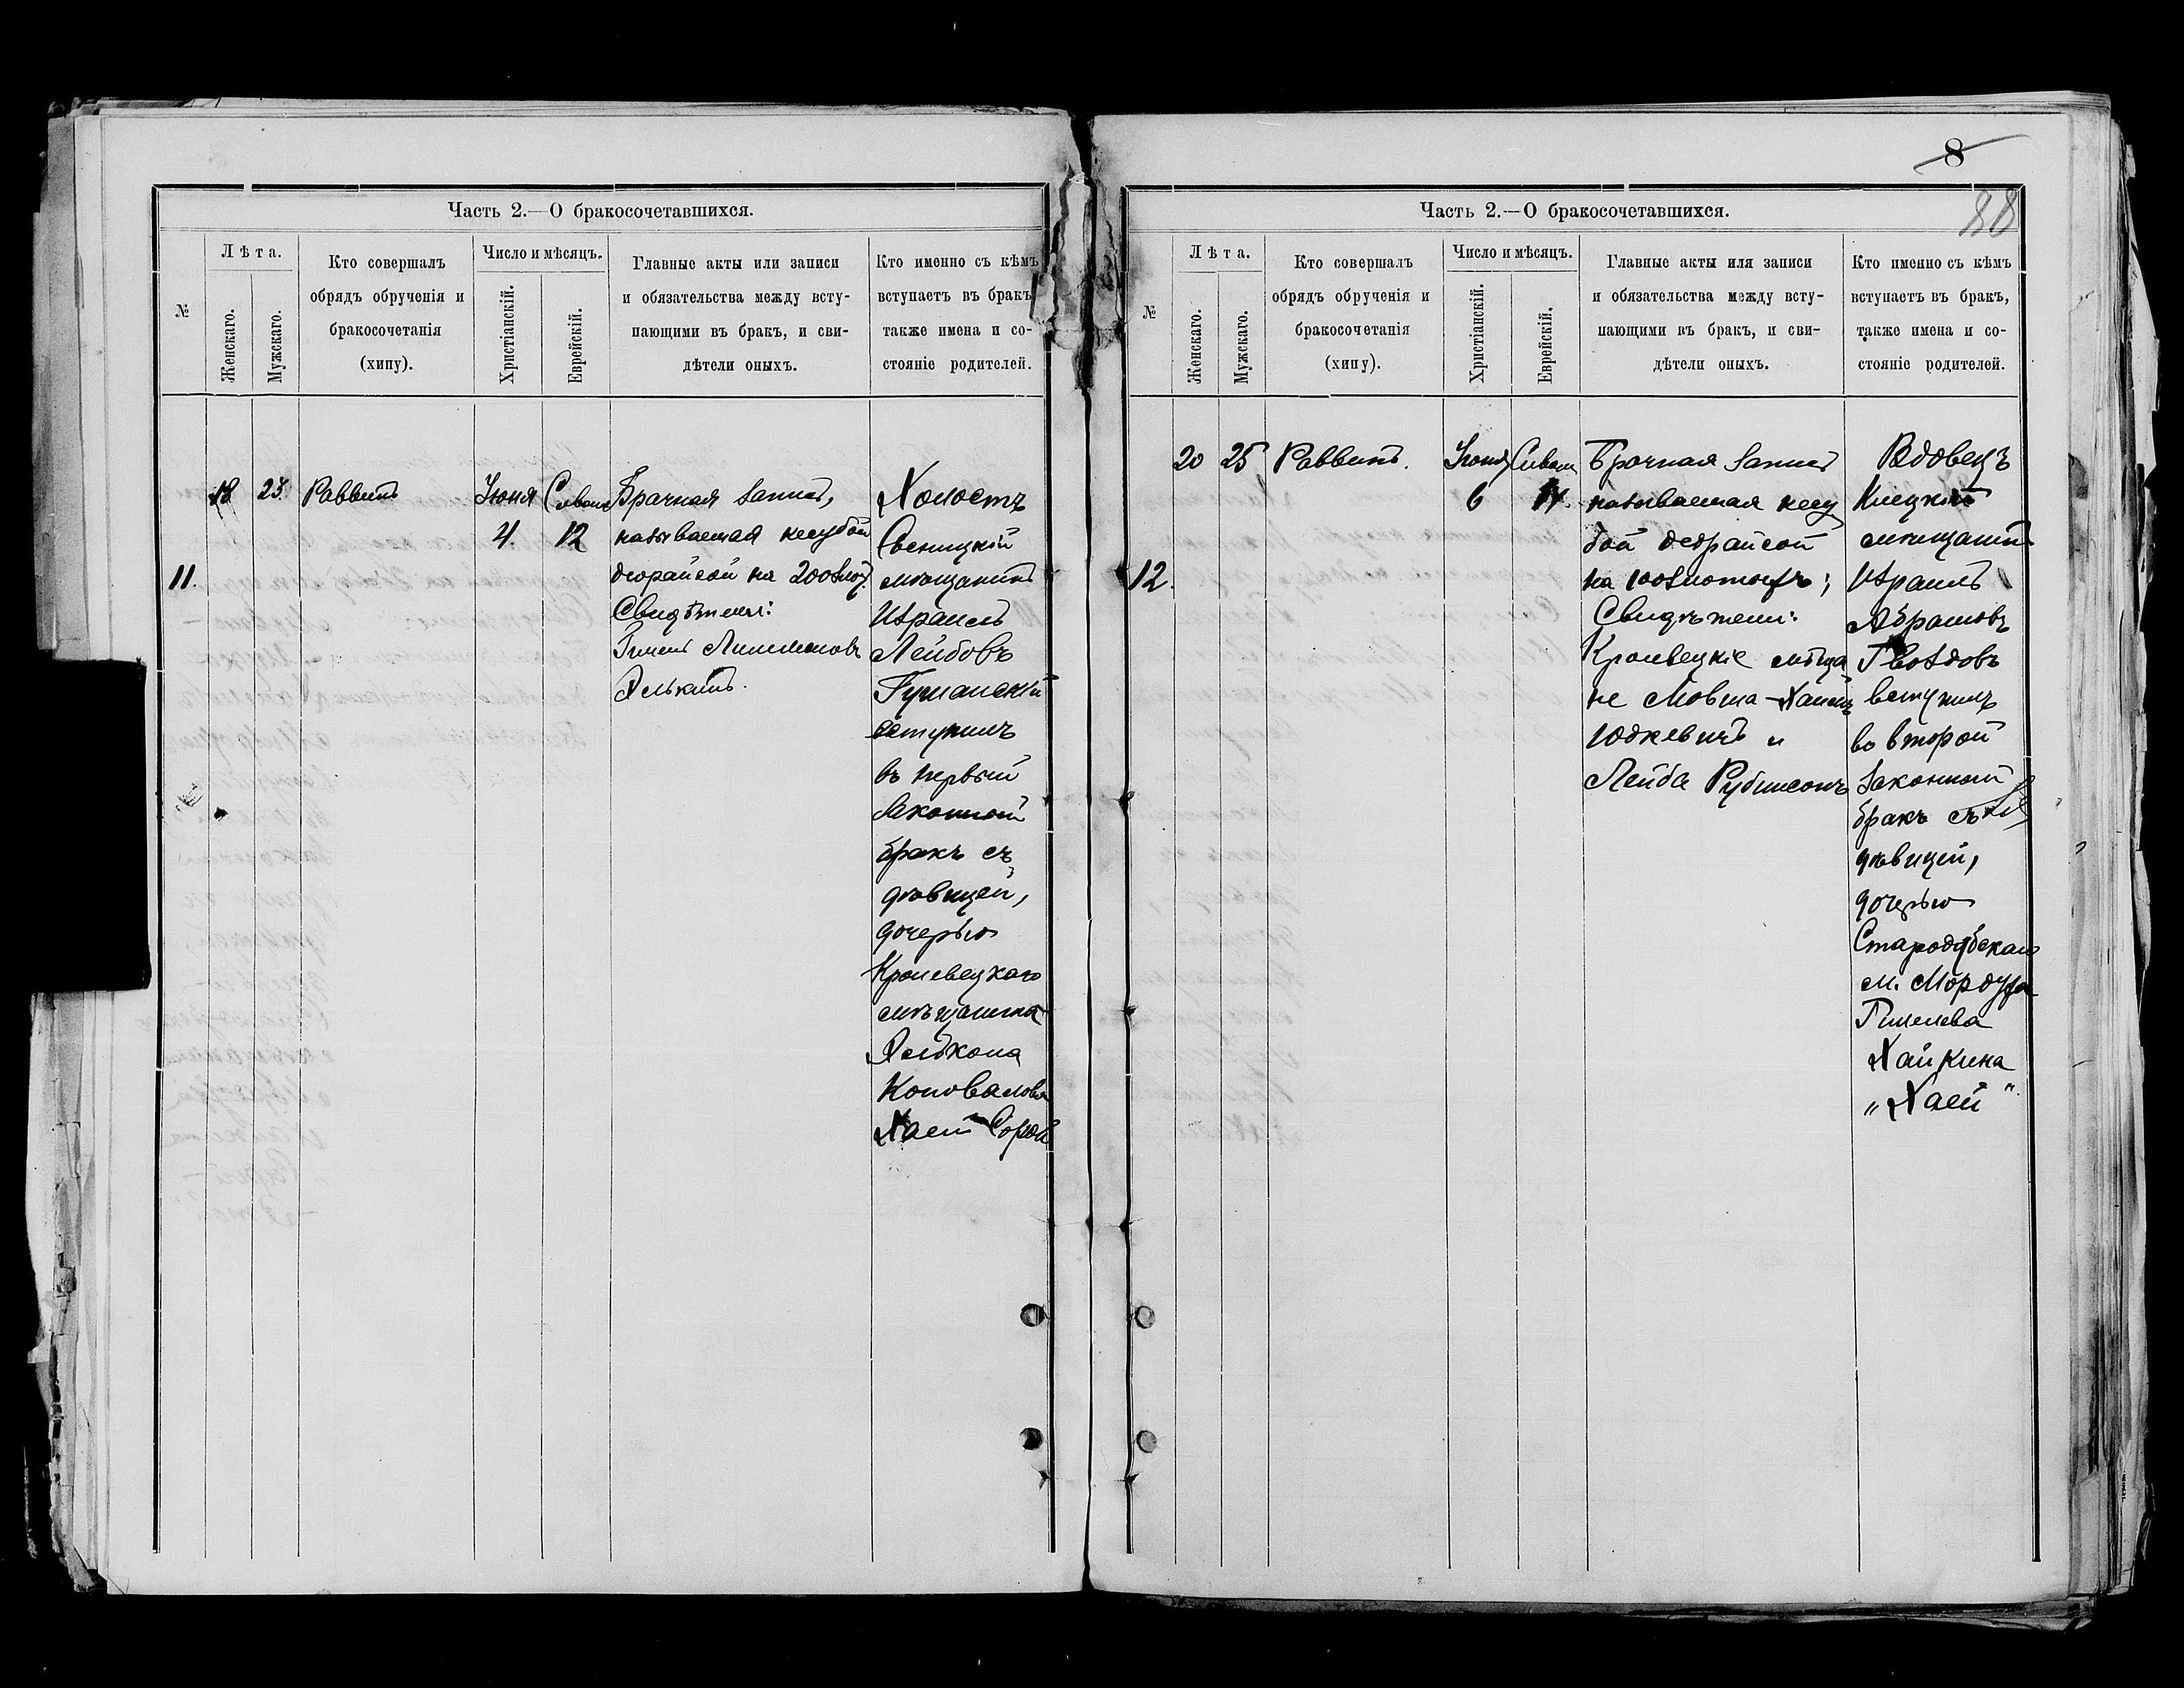 Часть 2.—О бракосочетавшихся.
№
Лѣта.
Женскаго.
Мужскаго.
Кто совершалъ
обрядъ обрученія и
бракосочетанія
(хипу).
Число и мѣсяцъ.
Христіанскій.
Еврейскій.
Главные акты или записи
и обязательства между всту-
пающими въ бракъ, и сви-
дѣтели оныхъ.
Кто именно съ кѣмъ
вступаетъ въ бракъ,
также имена и со-
стояніе родителей.
11.
18
23.
Раввинъ
Іюня
4.
Сивана
12
Брачная запись,
называемая кесубой
деорайсой на 200 злот.
Свидѣтели:
Гилель
Элькинъ.
Холостъ
мѣщанинъ
Израиль
Лейбовъ
Гуманскій
вступилъ
въ первый
законный
бракъ съ
дѣвицей,
дочерью
Кролевецкаго
мѣщанина
Коновалова
Хаей Сорой
8
88
Часть 2.—О бракосочетавшихся.
№
Лѣта.
Женскаго.
Мужскаго.
Кто совершалъ
обрядъ обрученія и
бракосочетанія
(хипу).
Число и мѣсяцъ.
Христіанскій.
Еврейскій.
Главные акты или записи
и обязательства между всту-
пающими въ бракъ, и сви-
дѣтели оныхъ.
Кто именно съ кѣмъ
вступаетъ въ бракъ,
также имена и со-
стояніе родителей.
12.
20
25
Раввинъ.
Іюня
6
Сивана
14.
Брачная запись
называемая кесу
бой деорайсой
на 100 злотыхъ;
Свидѣтели:
Кролевецкіе мѣща
не Мовша-Хаимъ
Юдкевичъ и
Лейба Рубинсонъ
Вдовецъ
Клецкій
мѣщанинъ
Израиль
Абрамовъ
Гвоздовъ
вступилъ
во второй
законный
бракъ съ
дѣвицей,
дочерью
Стародубскаго
м. Мордуха
Гилелева
Хайкина
„Хаей“